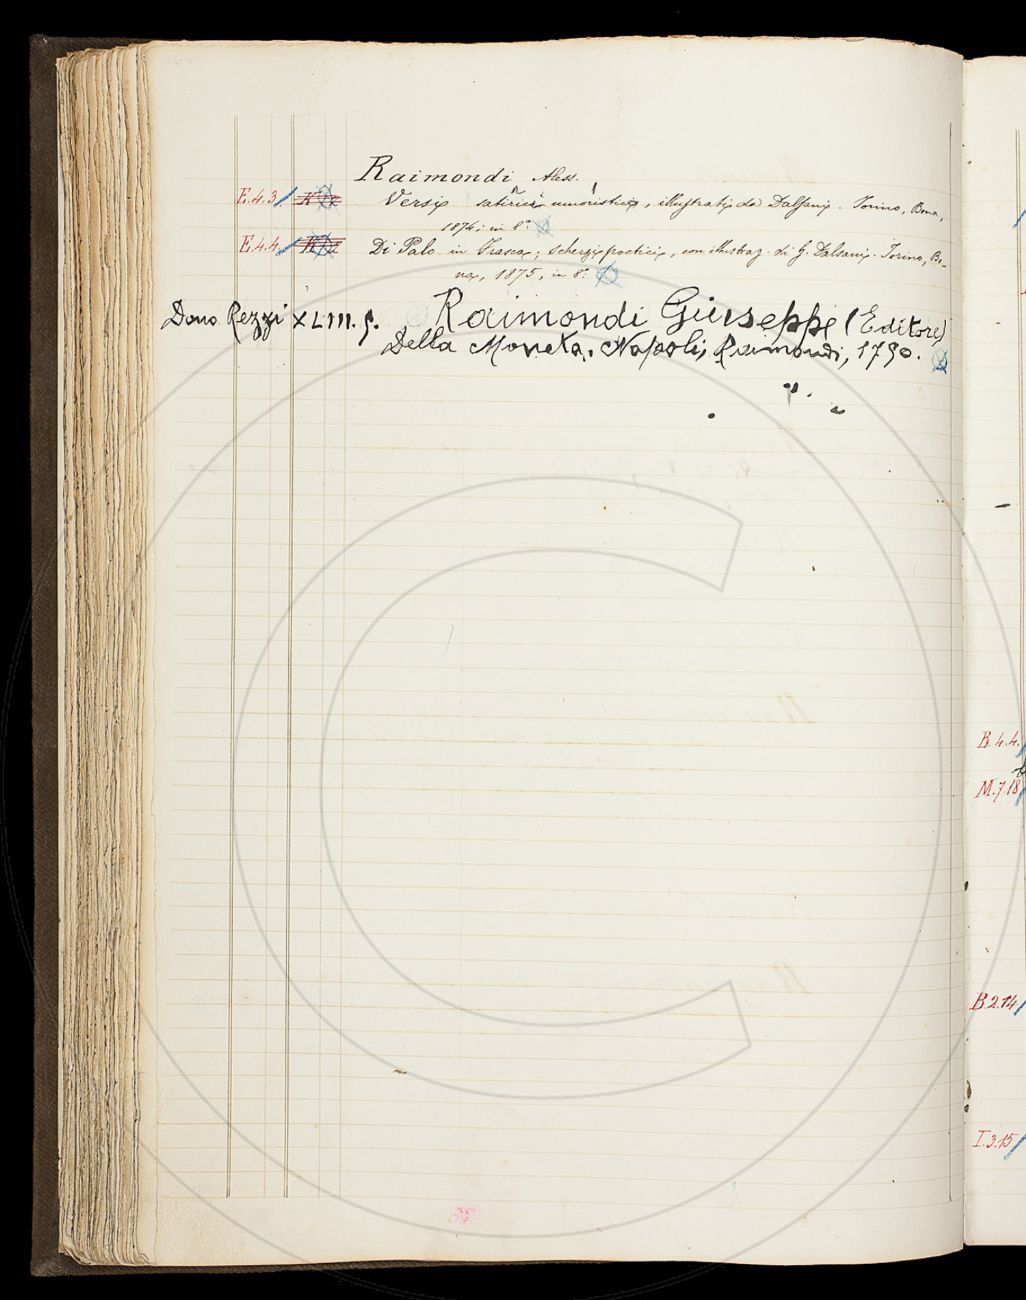 Raimondi Aless.
E.4.3 Versi satirici umoristici, illustrati da Dalsani. Torino, Bona,
1874, in 8.°
E.4.4 Di Palo in Frasca; scherzi poetici, con illustraz. di G. Dalsani. Torino, Bo-
na, 1875, in 8.°
Dono Rezzi XLIII. Raimondi Giuseppe (Editore)
Della Moneta. Napoli, Raimondi, 1750.
B.4.4.
M.7.18
B.2.14
I.3.15